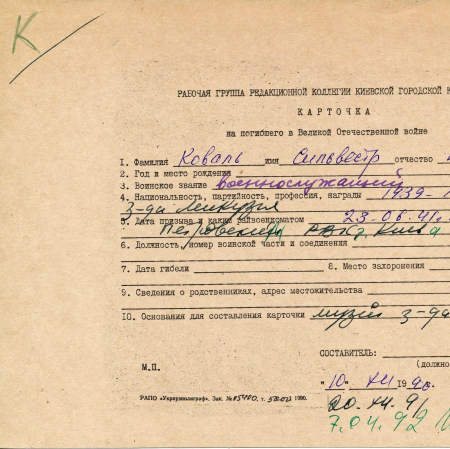 К
РАБОЧАЯ ГРУППА РЕДАКЦИОННОЙ КОЛЛЕГИИ КИЕВСКОЙ ГОРОДСКОЙ К
КАРТОЧКА
на погибшего в Великой Отечественной войне
1. Фамилия Коваль имя Сильвестр отчество
2. Год и место рождения
3. Воинское звание военнослужащий
4. Национальность, партийность, профессия, награды 1939-1
з-да Ленкузня
5. Дата призыва и каким райвоенкоматом 23.06.41
Петровский РВК г. Києва
6. Должность, номер воинской части и соединения
7. Дата гибели 8. Место захоронения
9. Сведения о родственниках, адрес местожительства
10. Основания для составления карточки музей з-да
СОСТАВИТЕЛЬ:
(должно
М.П.
"10" XII 1990
РАПО «Укрвузполиграф». Зак. 1990.
20.XII.91
7.04.92